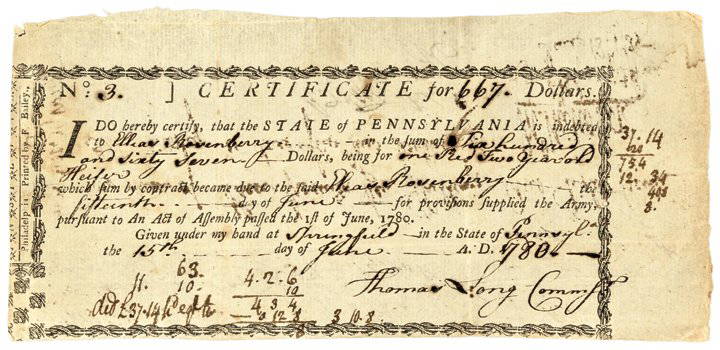 No. 3. ] CERTIFICATE for 667. Dollars.
I DO hereby certify, that the STATE of PENNSYLVANIA is indebted
to Elias Rosenberry in the sum of Six hundred
and Sixty Seven Dollars, being for one Red Two Year old
Heifer
which sum by contract became due to the said Elias Rosenberry the
fifteenth day of June for provisions supplied the Army,
pursuant to An Act of Assembly passed the 1st of June, 1780.
Given under my hand at Springfield in the State of Pennsyla
the 15th day of June A. D. 1780.
Thomas Long Commr
Philadelphia: Printed by F. Bailey.
37.14
754
12. 34
8.
63.
10.
4.2.6
10
4 3 4
12 8
8
3 10.8
£37.14